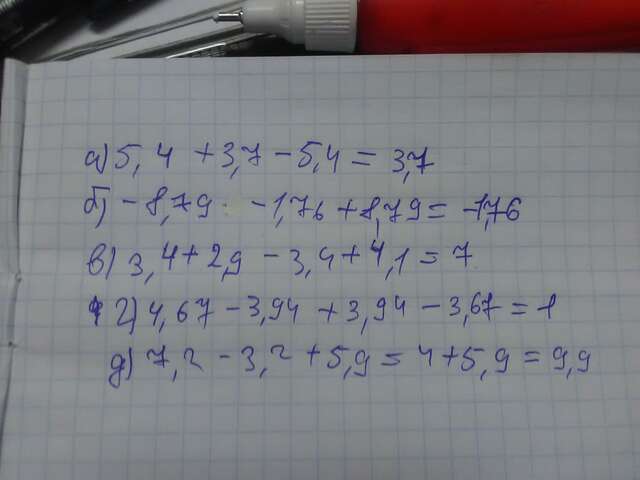 а) 5,4 + 3,7 - 5,4 = 3,7
б) - 8,79 - 1,76 + 8,79 = -1,76
в) 3,4 + 2,9 - 3,4 + 4,1 = 7
г) 4,67 - 3,94 + 3,94 - 3,67 = 1
д) 7,2 - 3,2 + 5,9 = 4 + 5,9 = 9,9